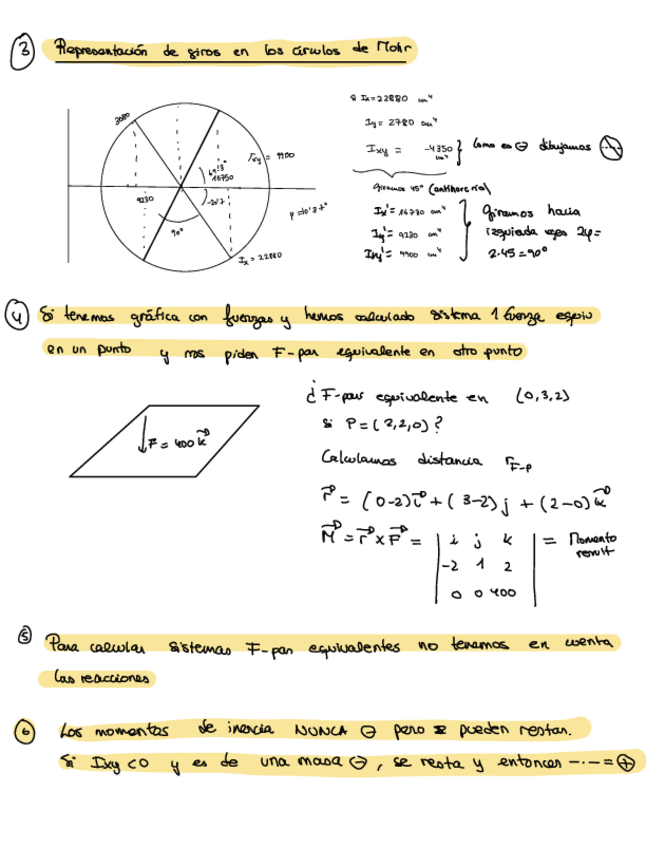 3 Representación de giros en los círculos de Mohr
Si Ix=22880 cm⁴
Iy= 2780 cm⁴
Ixy = -4350 cm⁴ } Como es ⊖ dibujamos
giramos 45° (antihorario)
Ix'= 16730 cm⁴
Iy'= 9230 cm⁴
Ixy'= 9900 cm⁴
giramos hacia
izquierda 2φ=
2·45=90°
9230
90°
Ix = 22880
4 Si tenemos gráfica con fuerzas y hemos calculado sistema 1 fuerza equiv
en un punto y nos piden F-par equivalente en otro punto
F= 400 k
¿ F-par equivalente en (0,3,2)
si P=(2,2,0)?
Calculamos distancia r F-P
r = (0-2)i+(3-2)j+(2-0)k
M = r x F = | i j k | = Momento
result
-2 1 2
0 0 400
5 Para calcular sistemas F-par equivalentes no tenemos en cuenta
las reacciones
6 Los momentos de inercia NUNCA ⊖ pero se pueden restar.
Si Ixy <0 y es de una masa ⊖, se resta y entonces -·- = ⊕